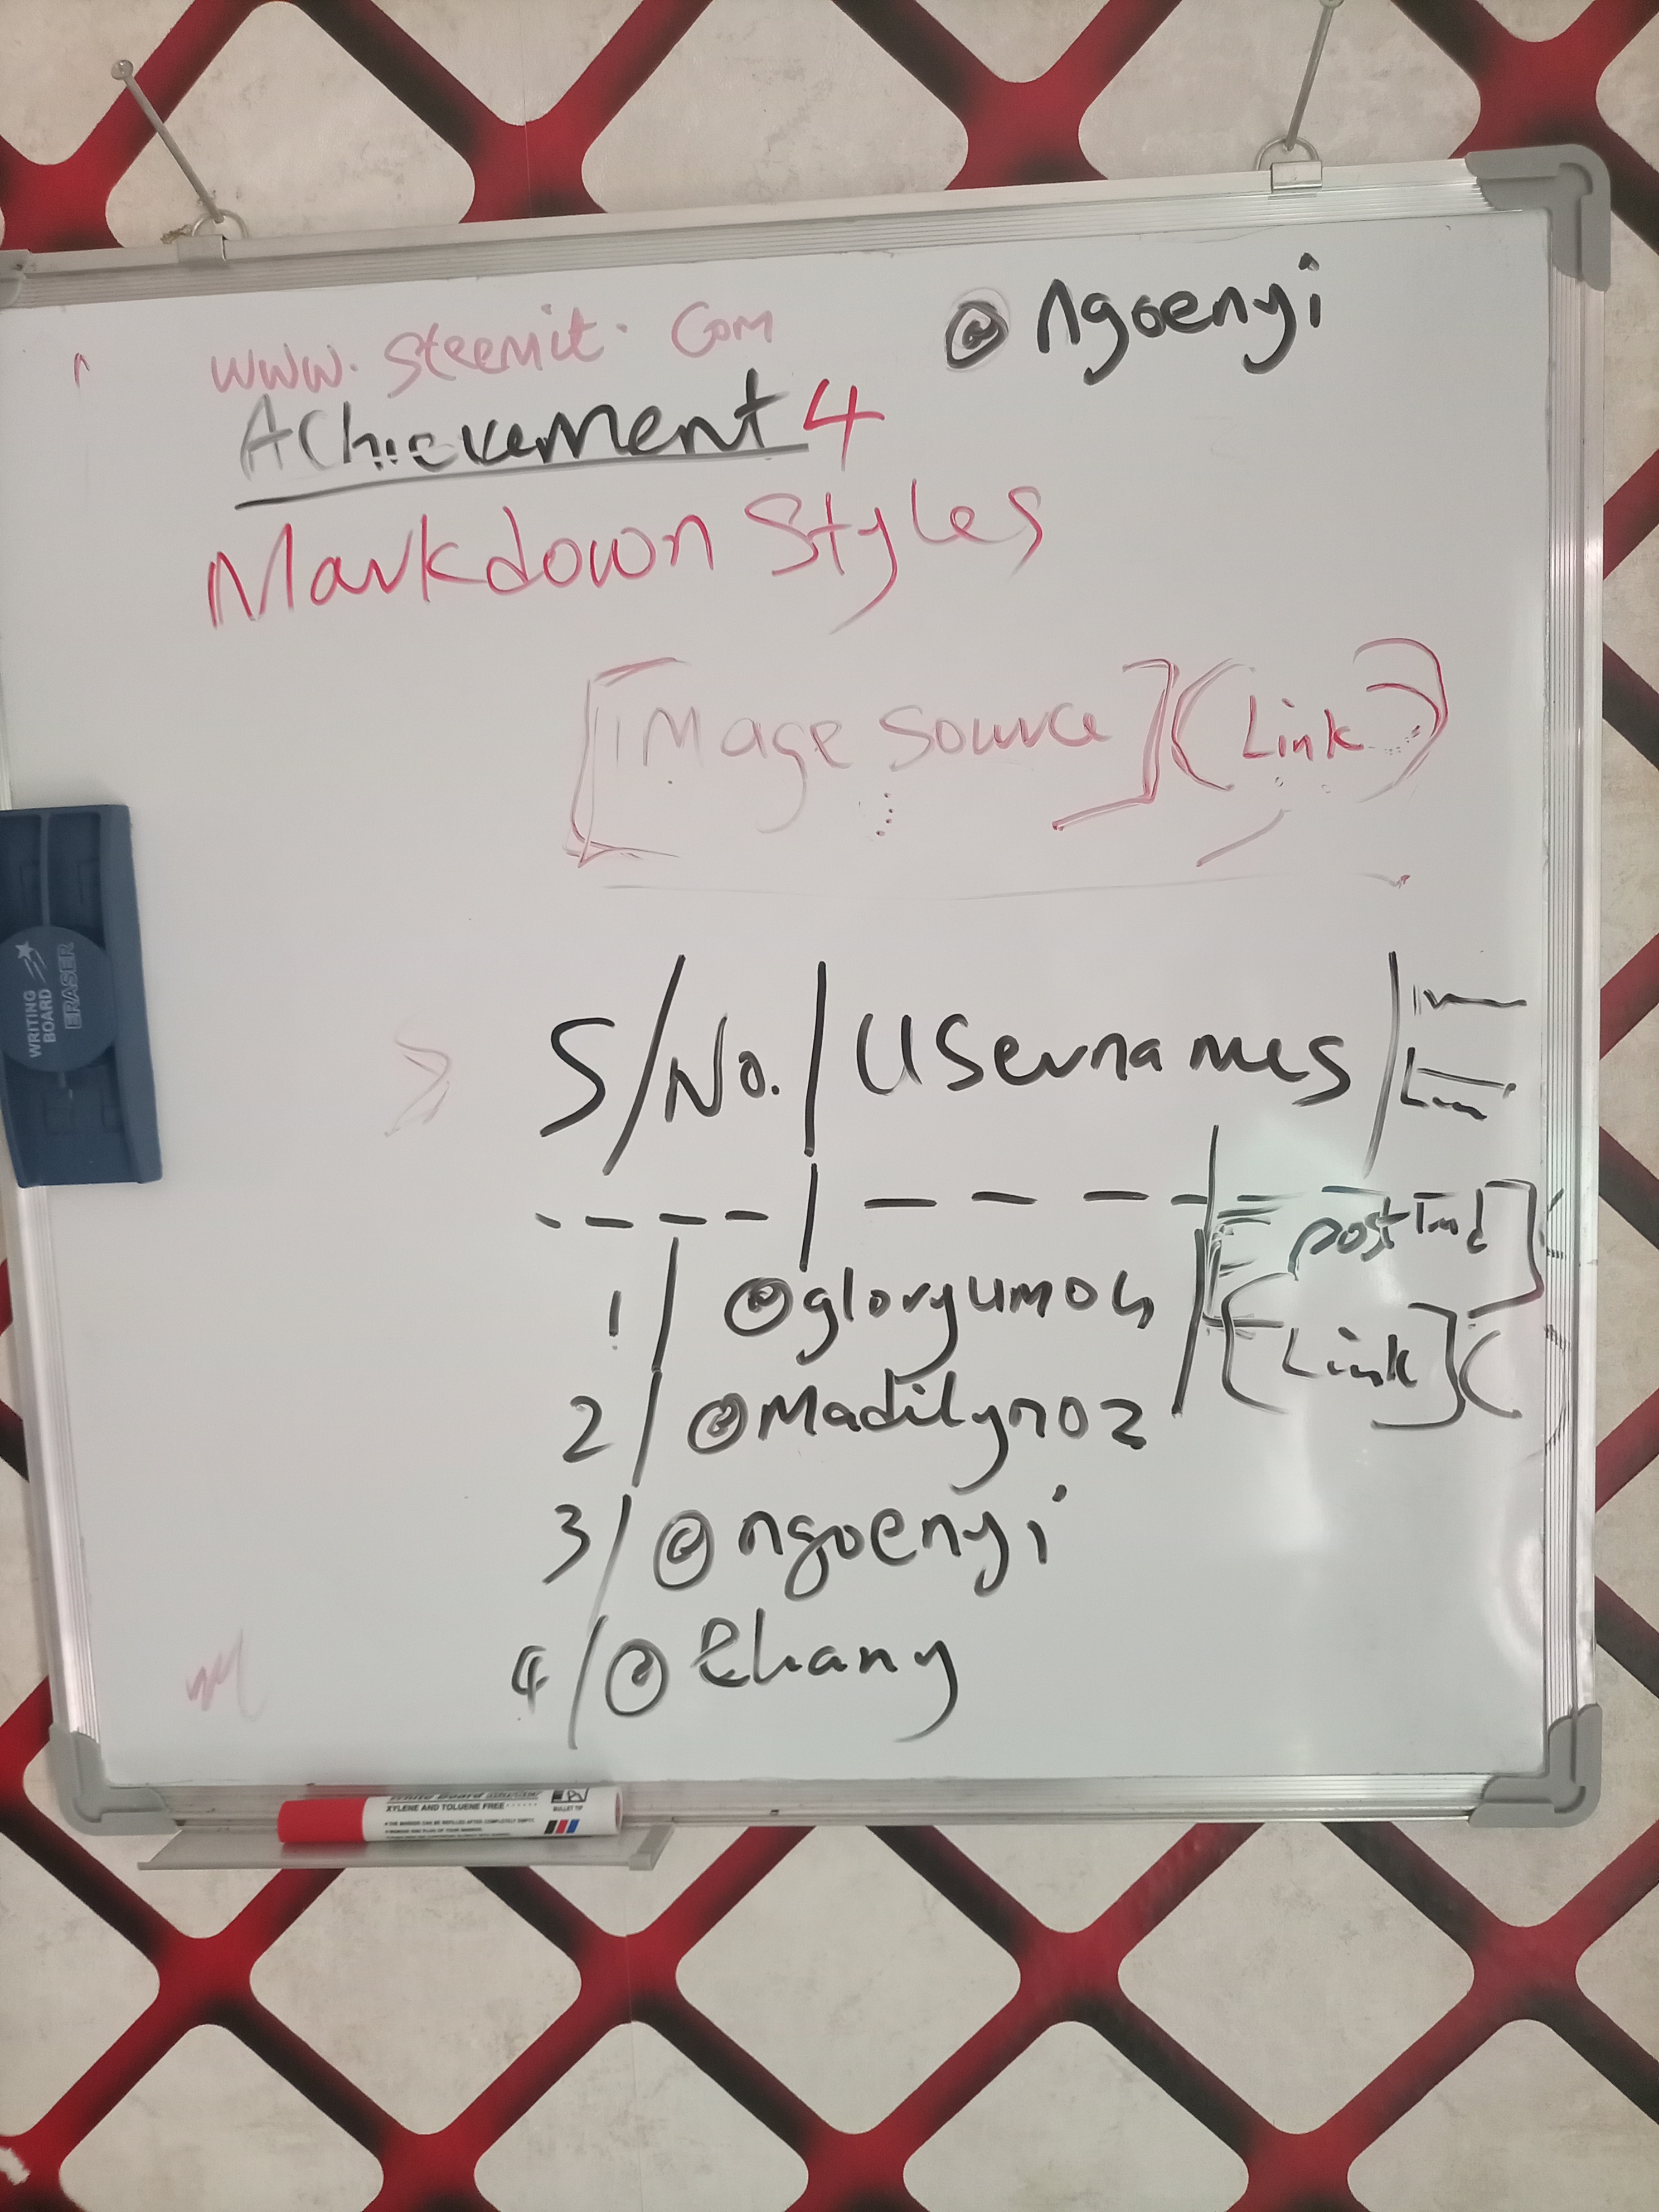 www.steemit.com
@ngoenyi
Achievement 4
Markdown Styles
[image source](Link)
S/No. | Usernames |
---- | ----
1 | @gloryumoh |
[Link](
2 | @Madilyn02
3 | @ngoenyi
4 | @Ehany
WRITING
BOARD
ERASER
XYLENE AND TOLUENE FREE
BULLET TIP